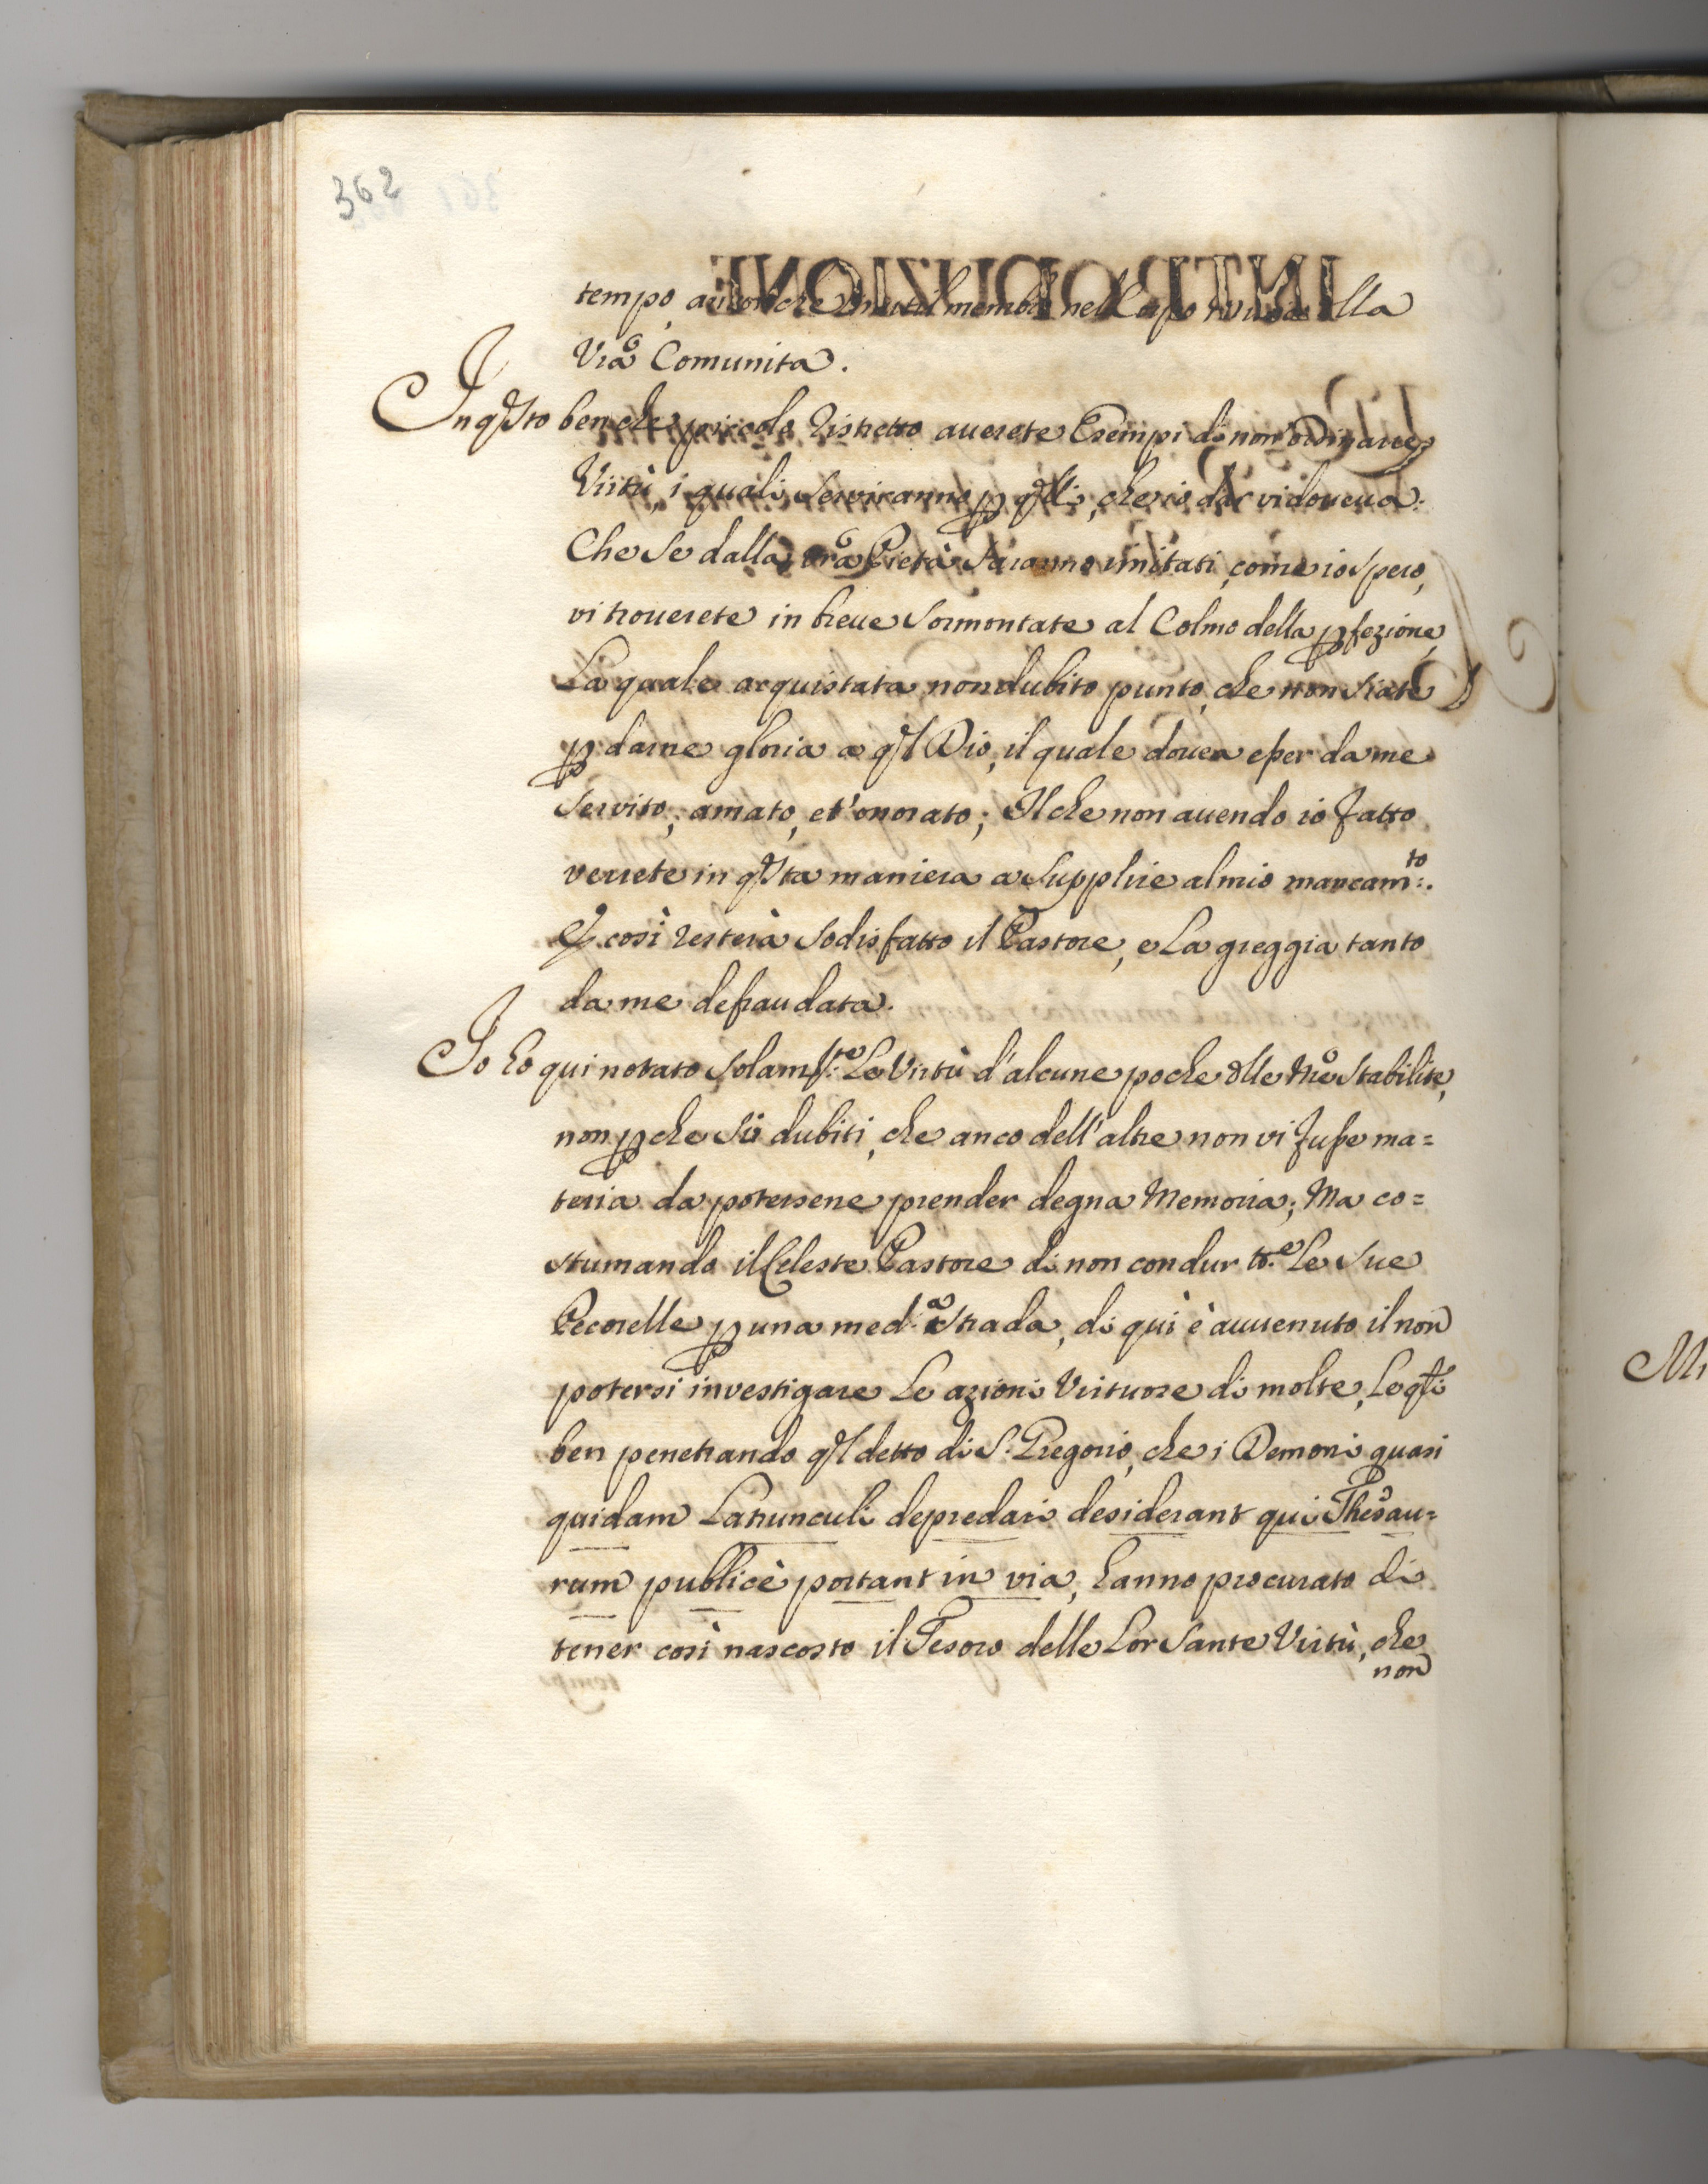 362
tempo, ancorche inutil membro nel Corpo della
Vrã Comunita.
In qsto ben che piccolo Ristretto auerete Esempi di non ordinarie
Virtù, i quali seruiranno p qlli, che io dar vi doueua.
Che se dalla vrã Pietà saranno imitati, come io spero,
vi trouerete in breue sormontate al Colmo della pfezione,
La quale acquistata non dubito punto, che non siate
p darne gloria a ql Dio, il quale douea esser da me
seruito, amato, et' onorato; Il che non auendo io fatto
verrete in qsta maniera a supplire al mio mancam:to
E così resterà sodisfatto il Pastore, e La greggia tanto
da me defraudata.
Io ho qui notato solam:te Le Virtù d'alcune poche dlle nrẽ stabilite,
non pche si dubiti, che anco dell'altre non vi fusse ma=
teria da potersene prender degna Memoria; Ma co=
stumando il Celeste Pastore di non condur tt.e Le sue
Pecorelle p una med.a strada, di quì è auuenuto il non
potersi investigare Le azioni Virtuose di molte, Le qli
ben penetrando ql detto di S. Gregorio, che i Demoni quasi
quidam Latrunculi depredari desiderant qui Thesau=
rum publicè portant in via, hanno procurato di
tener così nascosto il Tesoro delle Lor sante Virtù, che
non